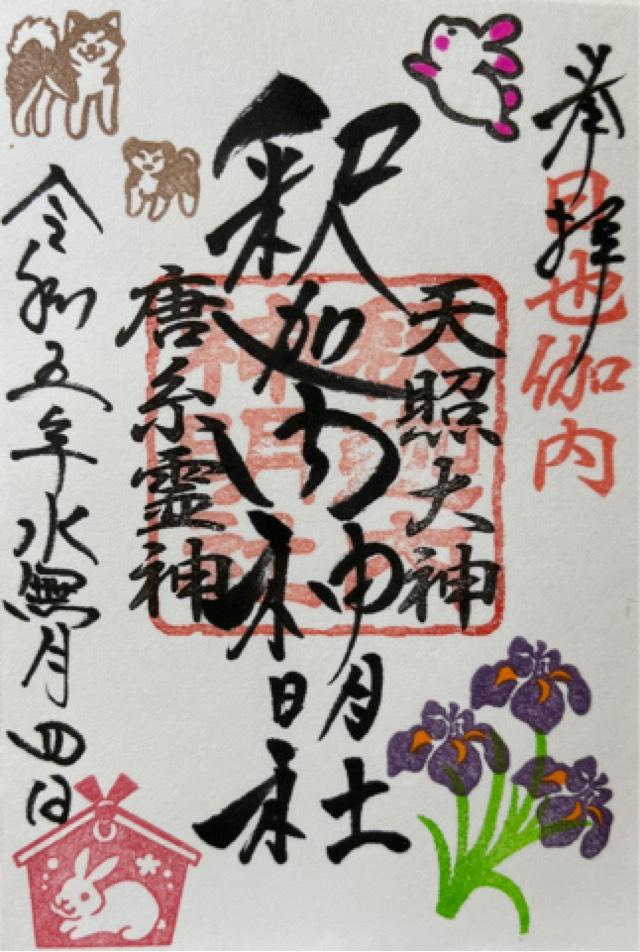 奉拝
日也伽内
天照大神
釈迦内神明社
唐糸霊神
令和五年水無月四日